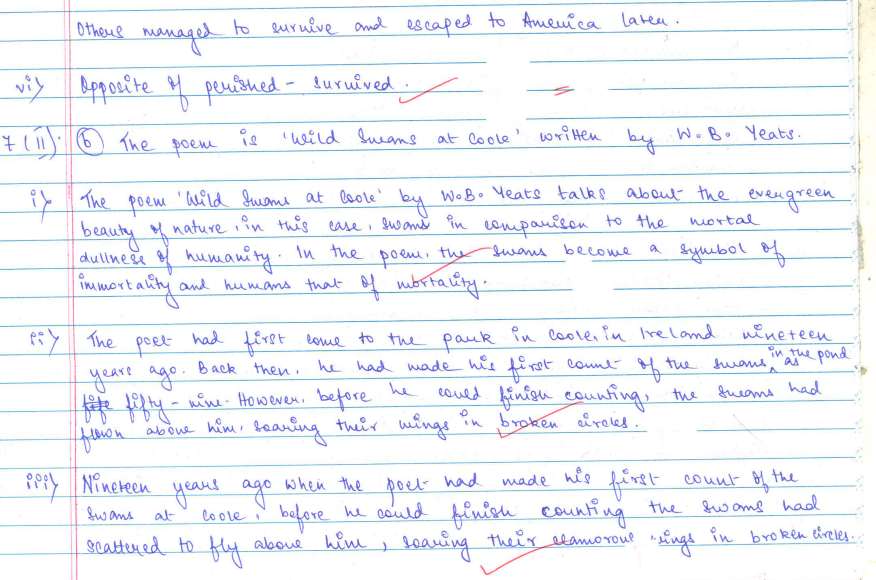 Others managed to survive and escaped to America later.
vi) Opposite of perished - survived.
7 (II). (b) The poem is 'Wild Swans at Coole' written by W.B. Yeats.
i) The poem 'Wild Swans at Coole' by W.B. Yeats talks about the evergreen
beauty of nature, in this case, swans in comparison to the mortal
dullness of humanity. In the poem, the swans become a symbol of
immortality and humans that of mortality.
ii) The poet had first come to the park in Coole, in Ireland nineteen
years ago. Back then, he had made his first count of the swans in the pond as
fifty-nine. However, before he could finish counting, the swans had
flown above him, soaring their wings in broken circles.
iii) Nineteen years ago when the poet had made his first count of the
swans at Coole, before he could finish counting the swans had
scattered to fly above him, soaring their clamorous wings in broken circles.